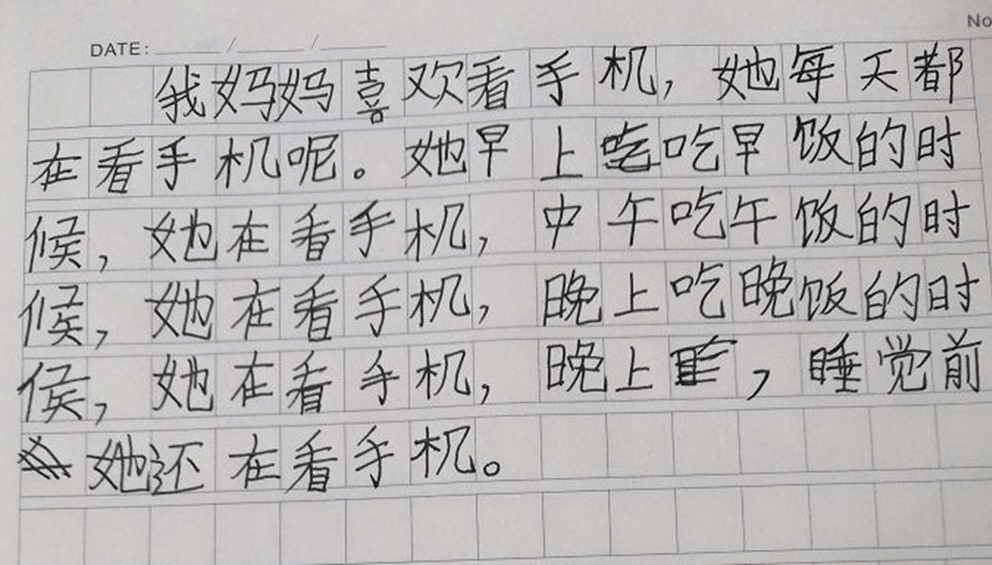 No
DATE: ____/____/____
我妈妈喜欢看手机，她每天都
在看手机呢。她早上吃早饭的时
候，她在看手机，中午吃午饭的时
候，她在看手机，晚上吃晚饭的时
侯，她在看手机，晚上，睡觉前
她还在看手机。